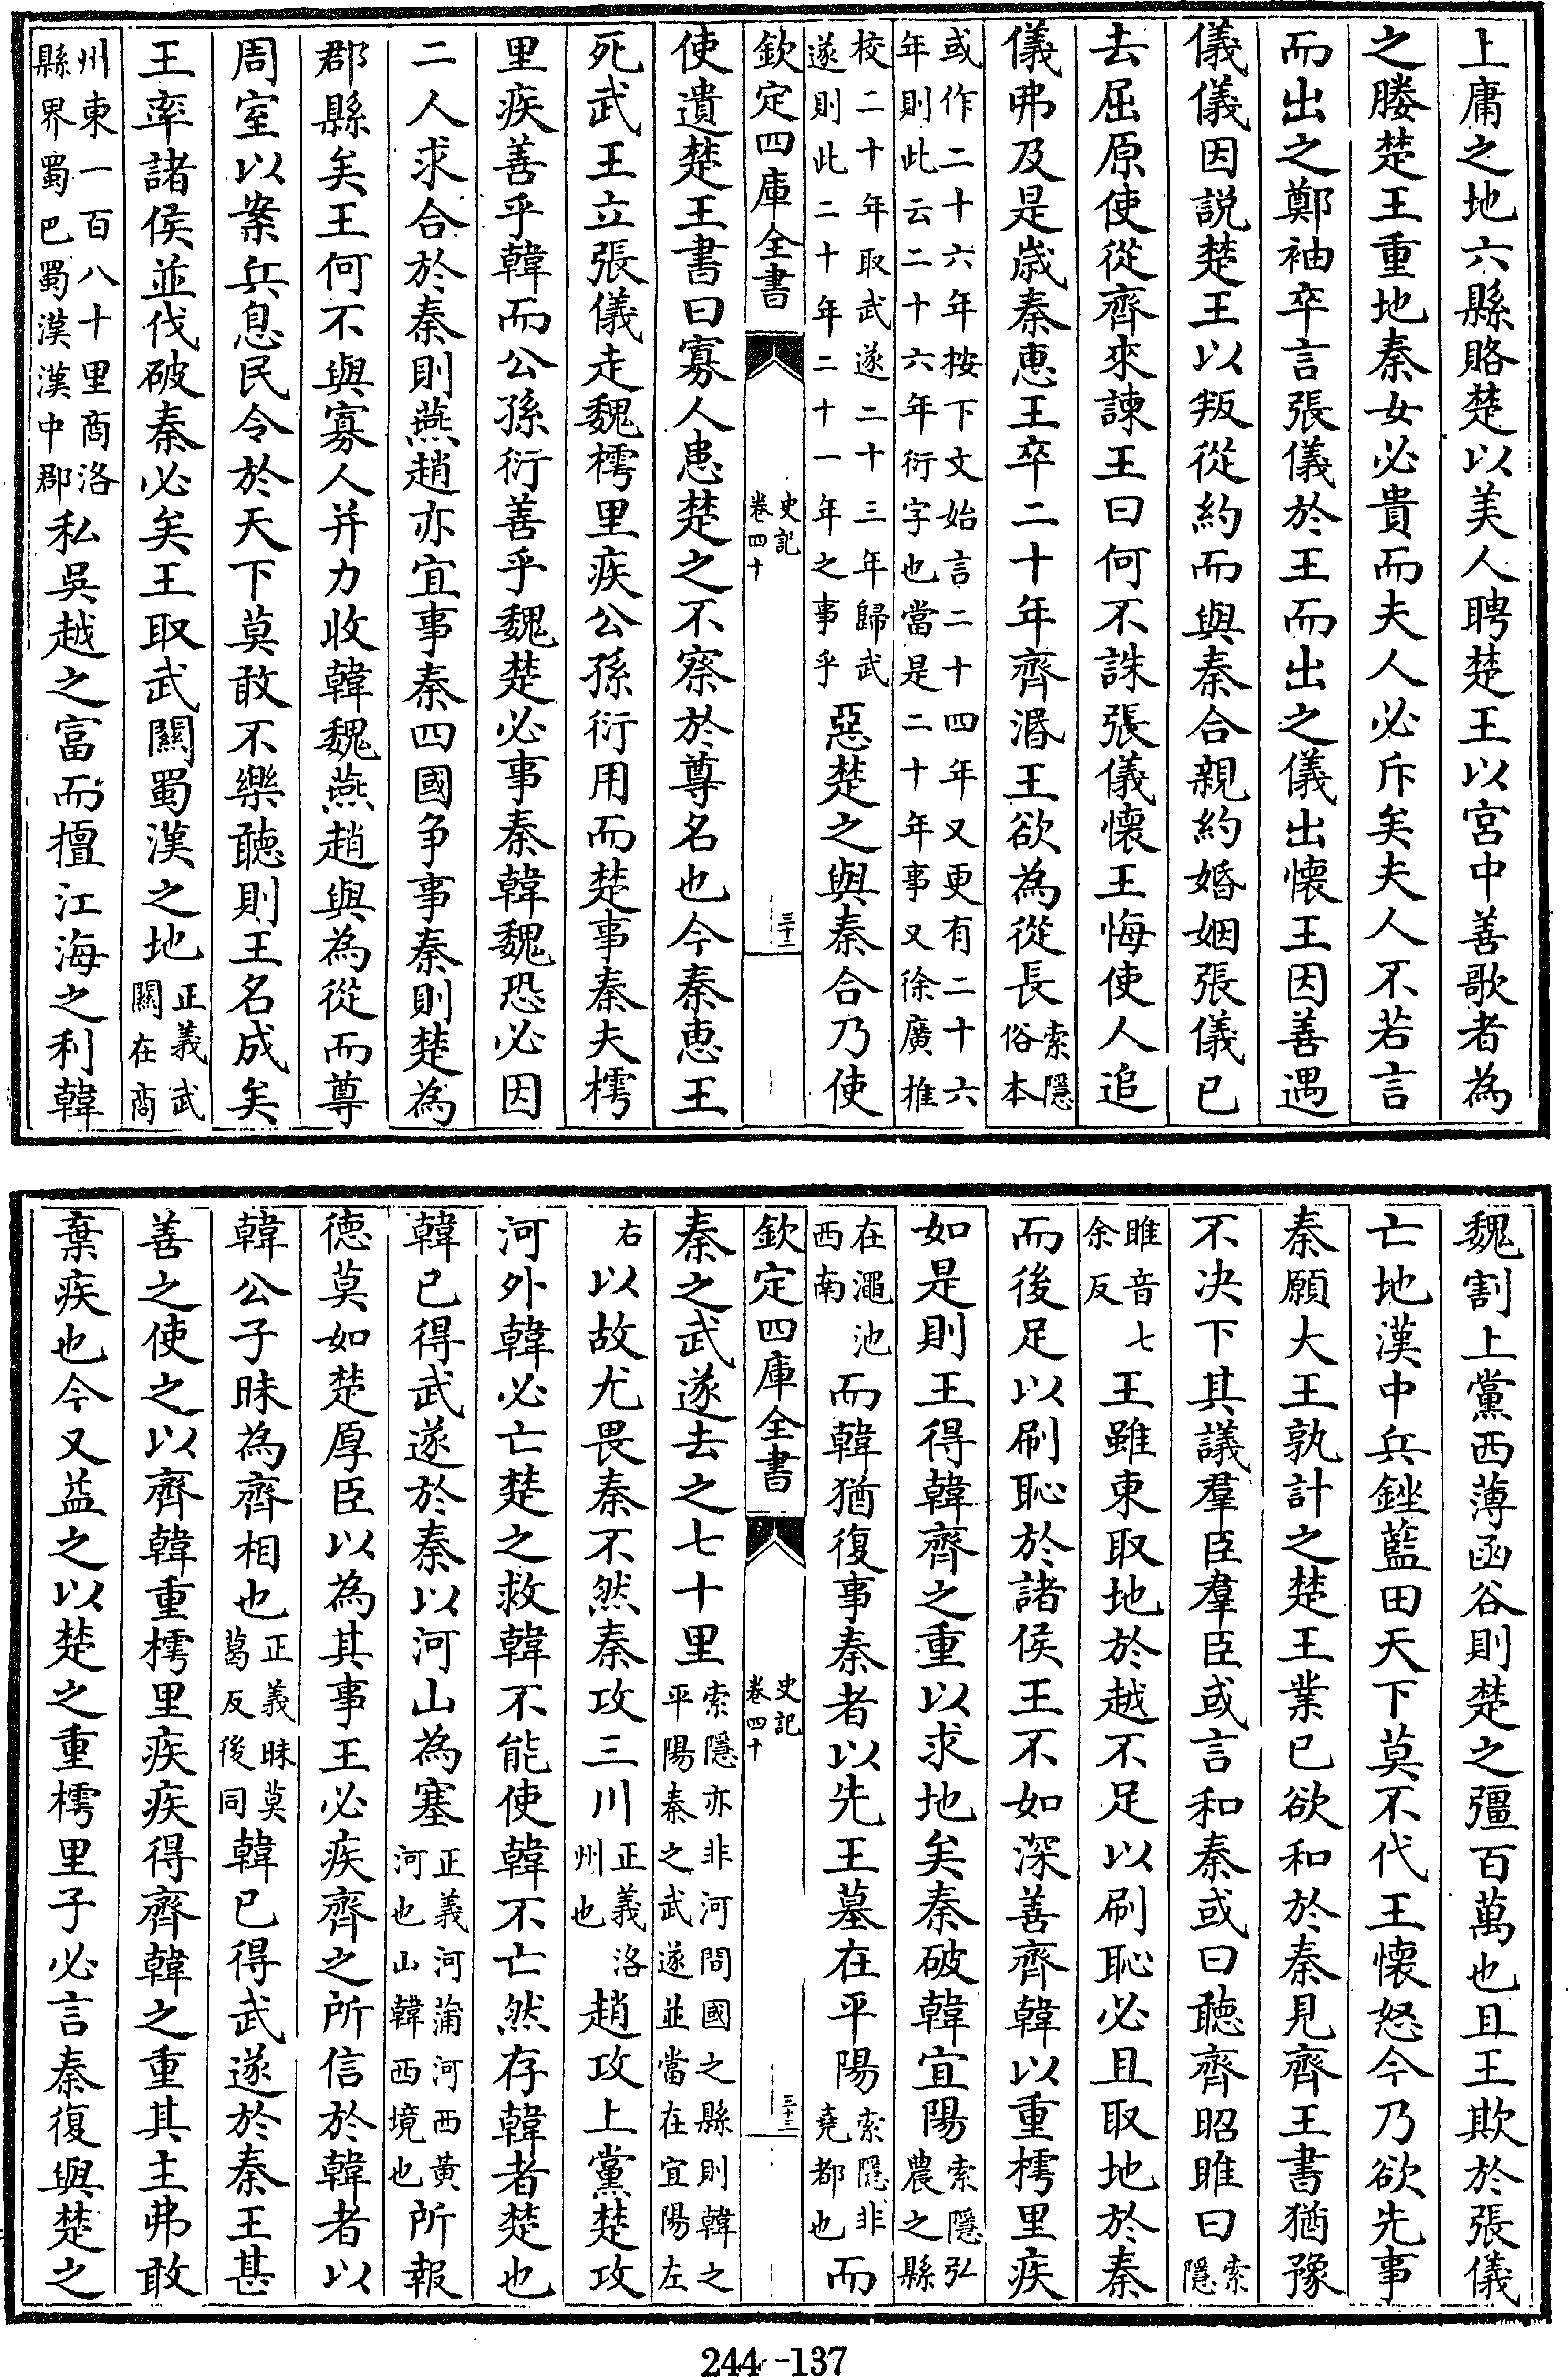 上庸之地六縣賂楚以美人聘楚王以宮中善歌者為
之媵楚王重地秦女必貴而夫人必斥矣夫人不若言
而出之鄭袖卒言張儀於王而出之儀出懷王因善遇
儀儀因説楚王以叛從約而與秦合親約婚姻張儀已
去屈原使從齊來諫王曰何不誅張儀懷王悔使人追
儀弗及是歲秦惠王卒二十年齊湣王欲為從長索隱俗本
或作二十六年按下文始言二十四年又更有二十六年則此云二十六年衍字也當是二十年事又徐廣推
校二十年取武遂二十三年歸武遂則此二十年二十一年之事乎惡楚之與秦合乃使
欽定四庫全書 史記卷四十 三十二
使遺楚王書曰寡人患楚之不察於尊名也今秦惠王
死武王立張儀走魏樗里疾公孫衍用而楚事秦夫樗
里疾善乎韓而公孫衍善乎魏楚必事秦韓魏恐必因
二人求合於秦則燕趙亦宜事秦四國争事秦則楚為
郡縣矣王何不與寡人并力收韓魏燕趙與為從而尊
周室以案兵息民令於天下莫敢不樂聽則王名成矣
王率諸侯並伐破秦必矣王取武關蜀漢之地正義武關在商
州東一百八十里商洛縣界蜀巴蜀漢漢中郡私吳越之富而擅江海之利韓
魏割上黨西薄函谷則楚之彊百萬也且王欺於張儀
亡地漢中兵銼藍田天下莫不代王懷怒今乃欲先事
秦願大王孰計之楚王業已欲和於秦見齊王書猶豫
不决下其議羣臣羣臣或言和秦或曰聽齊昭雎曰索隱
雎音七余反王雖東取地於越不足以刷恥必且取地於秦
而後足以刷恥於諸侯王不如深善齊韓以重樗里疾
如是則王得韓齊之重以求地矣秦破韓宜陽索隱弘農之縣
在澠池西南而韓猶復事秦者以先王墓在平陽索隱非堯都也而
欽定四庫全書 史記卷四十 三十三
秦之武遂去之七十里索隱亦非河間國之縣則韓之平陽秦之武遂並當在宜陽左
右以故尤畏秦不然秦攻三川正義洛州也趙攻上黨楚攻
河外韓必亡楚之救韓不能使韓不亡然存韓者楚也
韓已得武遂於秦以河山為塞正義河蒲河西黃河也山韓西境也所報
德莫如楚厚臣以為其事王必疾齊之所信於韓者以
韓公子昧為齊相也正義昧莫葛反後同韓已得武遂於秦王甚
善之使之以齊韓重樗里疾疾得齊韓之重其主弗敢
棄疾也今又益之以楚之重樗里子必言秦復與楚之
244-137